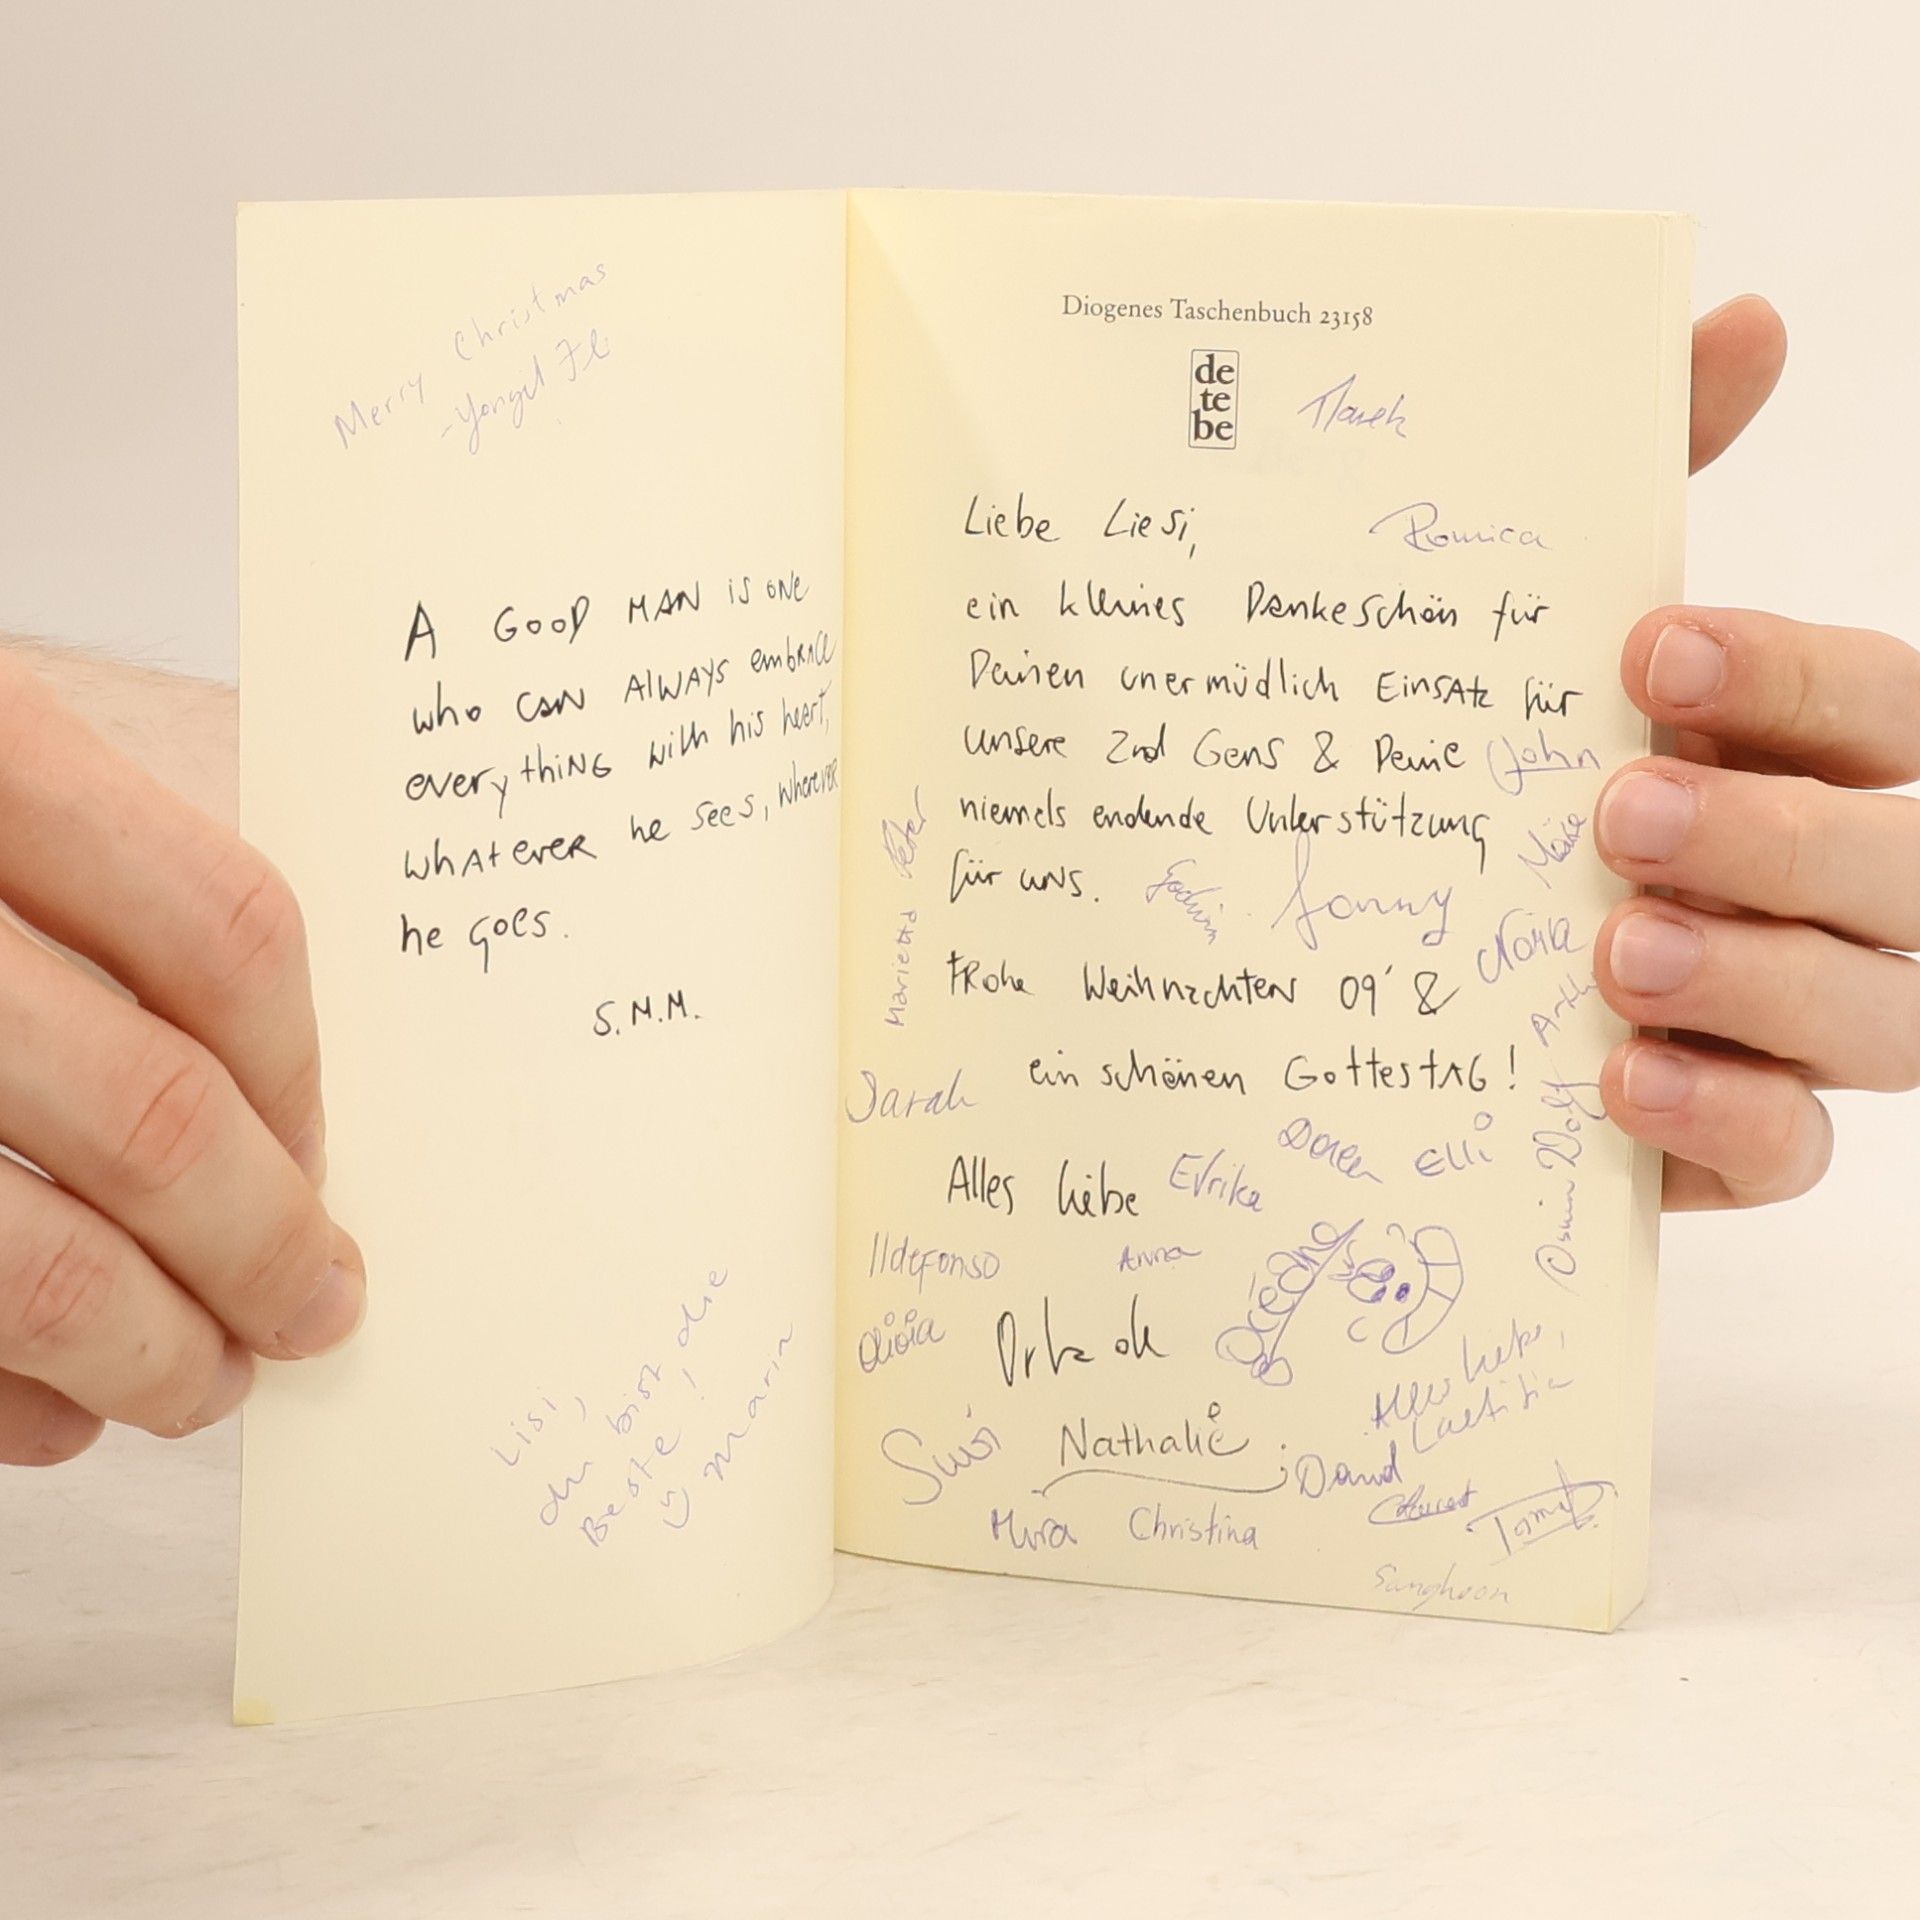 Merry Christmas
A GOOD MAN is one
who CAN AlWAYS embrace
everything with his heart,
whatever he sees, wherever
he goes.
S.M.M.
Lisi,
du bist die
Beste!
Marin
Diogenes Taschenbuch 23158
de
te
be
Marek
Liebe Liesi,
Romica
ein kleines Dankeschön für
Deinen unermüdlich Einsatz für
unsere 2nd Gens & Deine
John
niemals endende Unterstützung
für uns.
Peter
Marietta
Jonny
Noria
Frohe Weihnachten 09' &
ein schönen Gottestag!
Sarah
Doreen
Elli
Alles liebe
Evrika
Ildefonso
Anna
Océane
Olivia
Alles Liebe,
Laetitia
Susi
Nathalie
David
Mira
Christina
Sanghoon